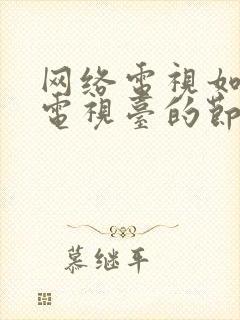 网络電視如
電視臺的節
慕继平